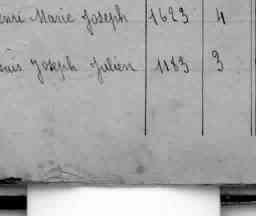 enri Marie Joseph 1623 4
enis Joseph Julien 1183 3